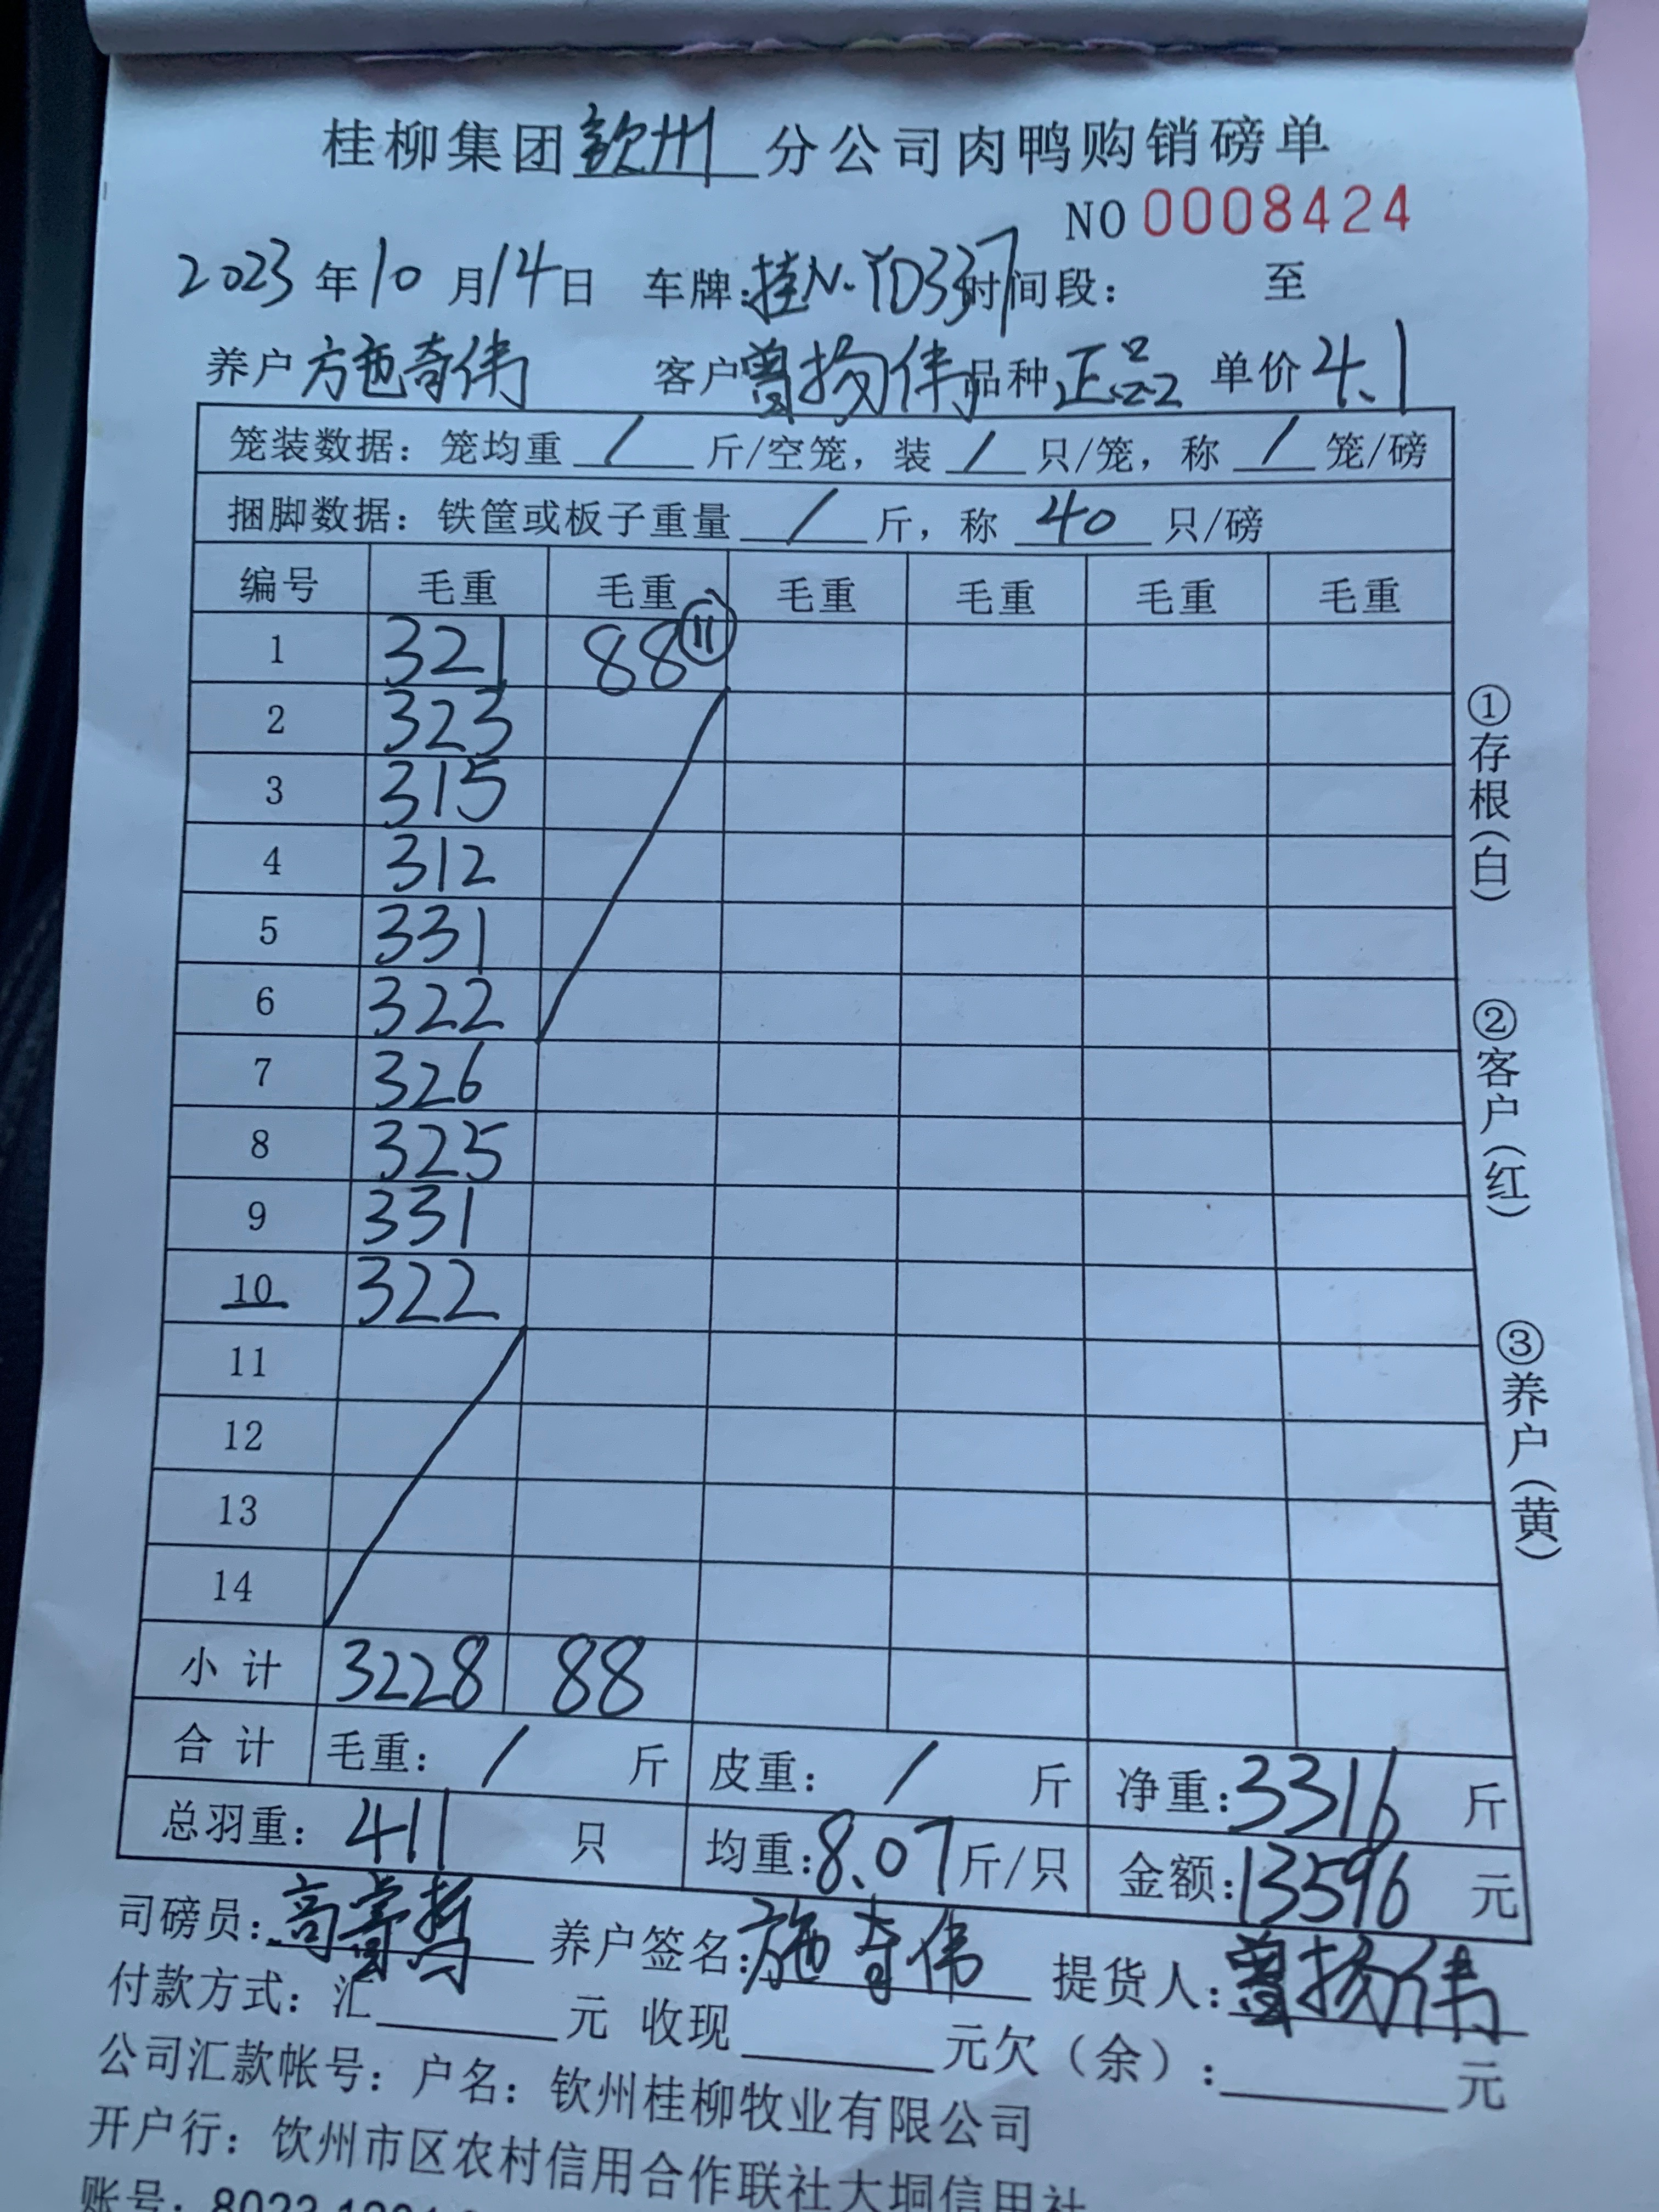 桂柳集团钦州分公司肉鸭购销磅单
NO 0008424
2023年10月14日 车牌:桂N·YD337时间段: 至
养户 方施奇伟 客户曾扬伟 品种 正品 单价 4.1
笼装数据: 笼均重 / 斤/空笼, 装 / 只/笼, 称 / 笼/磅
捆脚数据: 铁筐或板子重量 / 斤, 称 40 只/磅
编号 毛重 毛重 毛重 毛重 毛重 毛重
1 321 88⑪
2 323
3 315
4 312
5 331
6 322
7 326
8 325
9 331
10 322
11
12
13
14
小计 3228 88
合计 毛重: / 斤 皮重: / 斤 净重:3316 斤
总羽重: 411 只 均重:8.07斤/只 金额:13596 元
①存根(白)
②客户(红)
③养户(黄)
司磅员: 养户签名:施奇伟 提货人:曾扬伟
付款方式: 汇 元 收现 元欠(余): 元
公司汇款帐号: 户名: 钦州桂柳牧业有限公司
开户行: 钦州市区农村信用合作联社大垌信用社
账号: